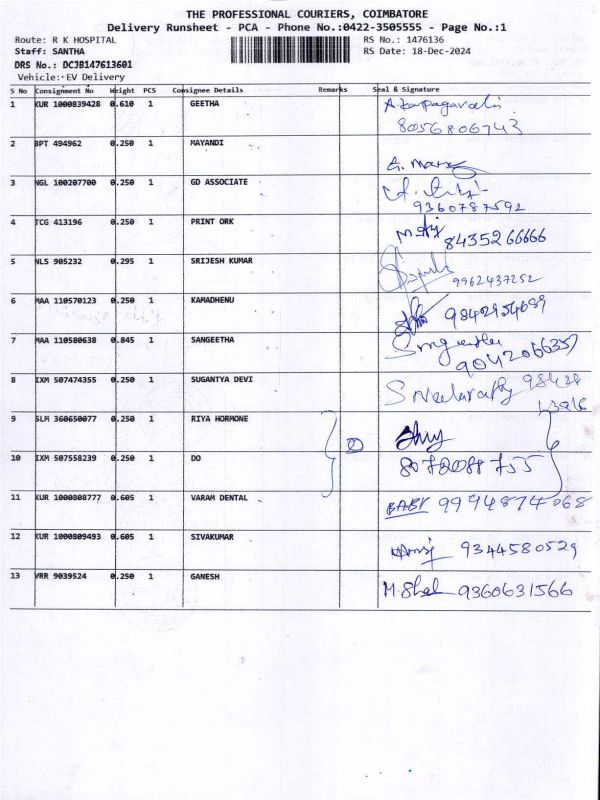 THE PROFESSIONAL COURIERS, COIMBATORE
Delivery Runsheet - PCA - Phone No.:0422-3505555 - Page No.:1
Route: R K HOSPITAL RS No.: 1476136
Staff: SANTHA RS Date: 18-Dec-2024
DRS No.: DCJB147613601
Vehicle: EV Delivery
S No Consignment No Weight PCS Consignee Details Remarks Seal & Signature
1 KUR 1000839428 0.610 1 GEETHA A. Karpagavalli
8056806743
2 BPT 494962 0.250 1 MAYANDI
3 NGL 100207700 0.250 1 GD ASSOCIATE
9360787592
4 TCG 413196 0.250 1 PRINT ORK 8435266666
5 NLS 905232 0.295 1 SRIJESH KUMAR
9962437252
6 MAA 110570123 0.250 1 KAMADHENU 9842954689
7 MAA 110580638 0.845 1 SANGEETHA Sangeetha
9042066357
8 IXM 507474355 0.250 1 SUGANTYA DEVI
9 SLM 360650077 0.250 1 RIYA HORMONE
10 IXM 507558239 0.250 1 DO 8072088755
11 KUR 1000808777 0.605 1 VARAM DENTAL BABY 9994874068
12 KUR 1000809493 0.605 1 SIVAKUMAR 9344580529
13 VRR 9039524 0.250 1 GANESH 9360631566